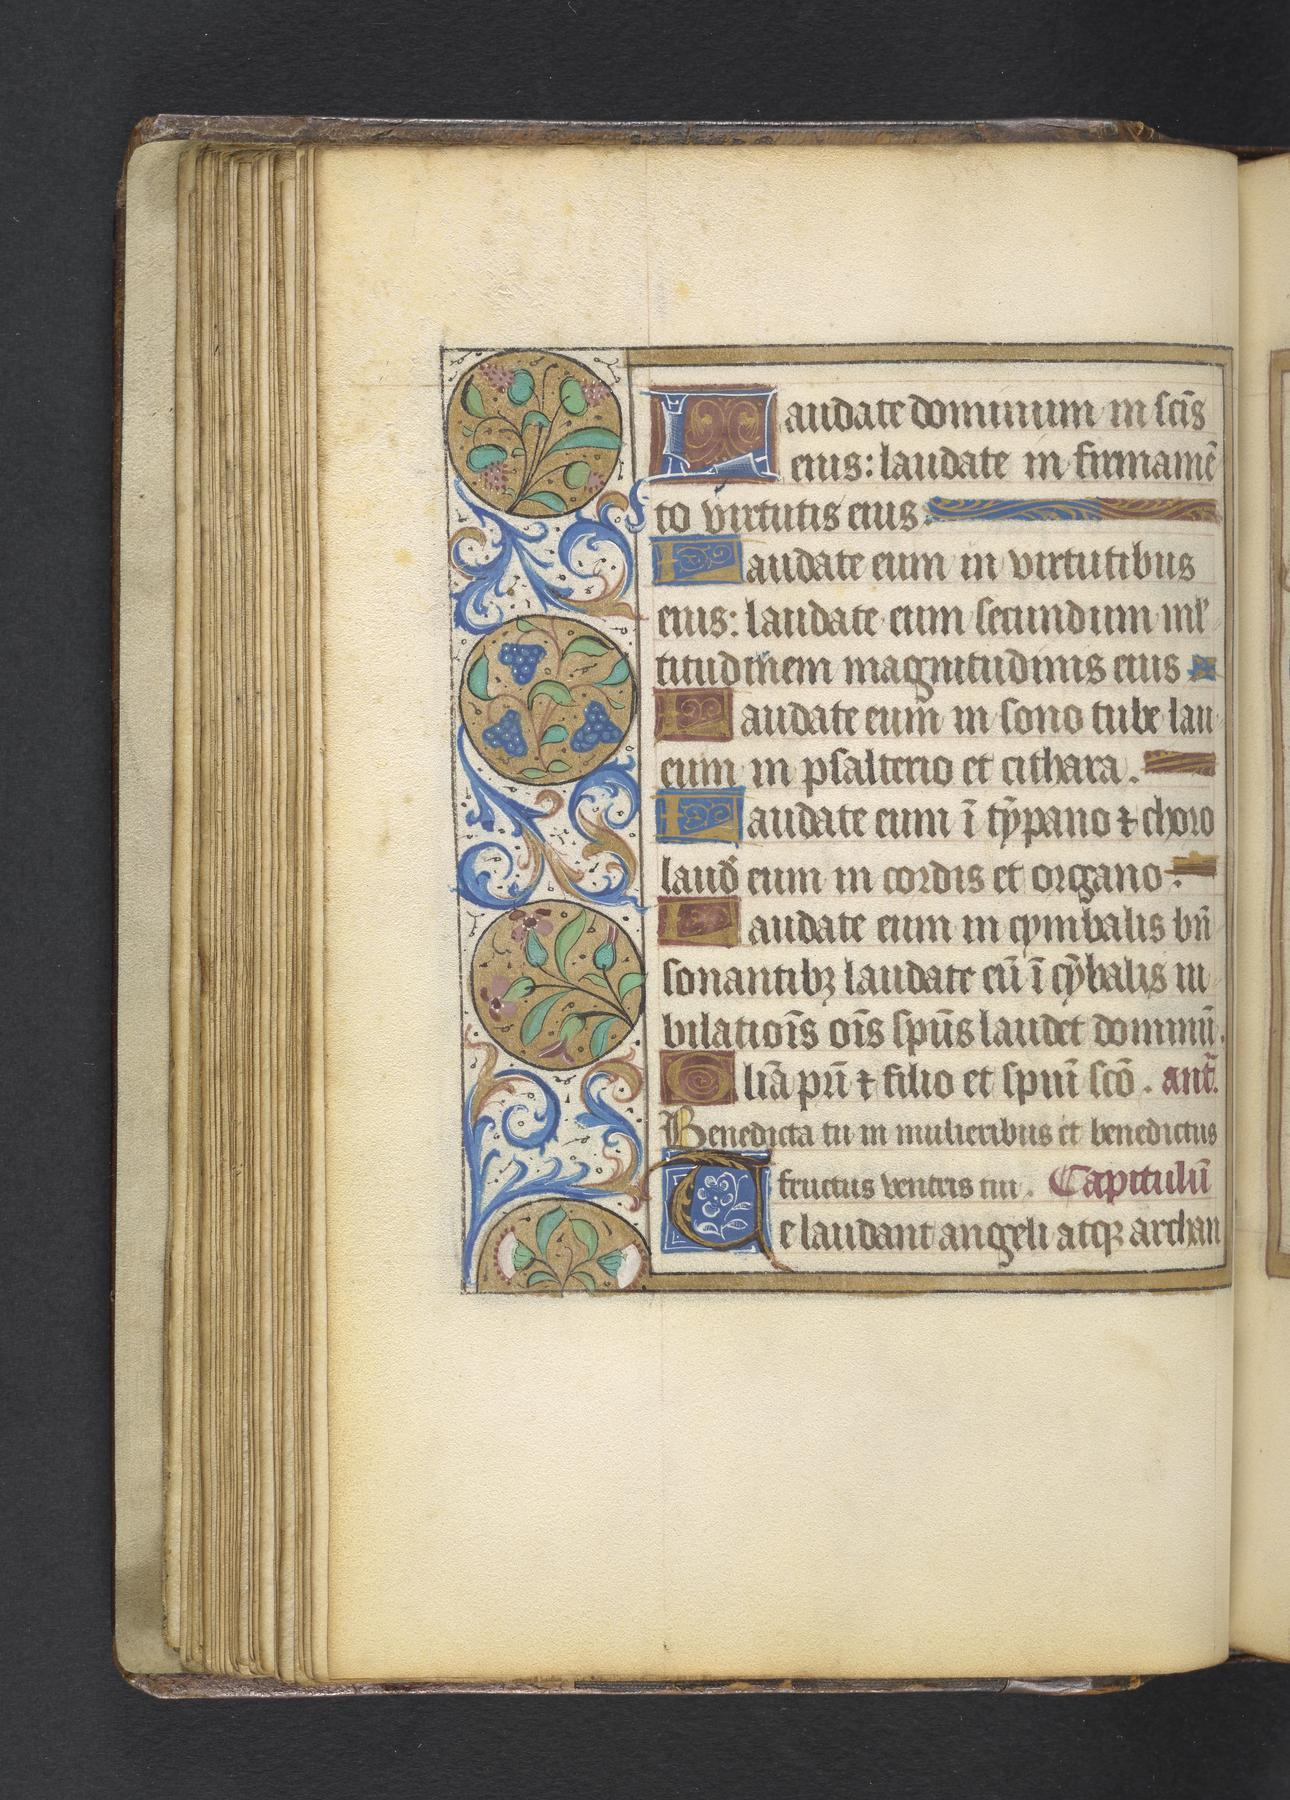 Laudate dominum in sc̄is
eius: laudate in firmamē
to virtutis eius.
Laudate eum in virtutibus
eius: laudate eum secundum ml̄
titudinem magnitudinis eius
Laudate eum in sono tube lau
eum in psalterio et cithara.
Laudate eum ī tȳpano ⁊ choro
laud̄ eum in cordis et organo.
Laudate eum in cymbalis bn̄
sonantibꝫ laudate eū ī cȳbalis iu
bilatiōis oīs sp̄us laudet dominū.
Gliā pr̄i ⁊ filio et sp̄ui scō. ant̄.
Benedicta tu in mulieribus et benedictus
fructus ventris tui. Capitulū
Te laudant angeli atqꝫ archan